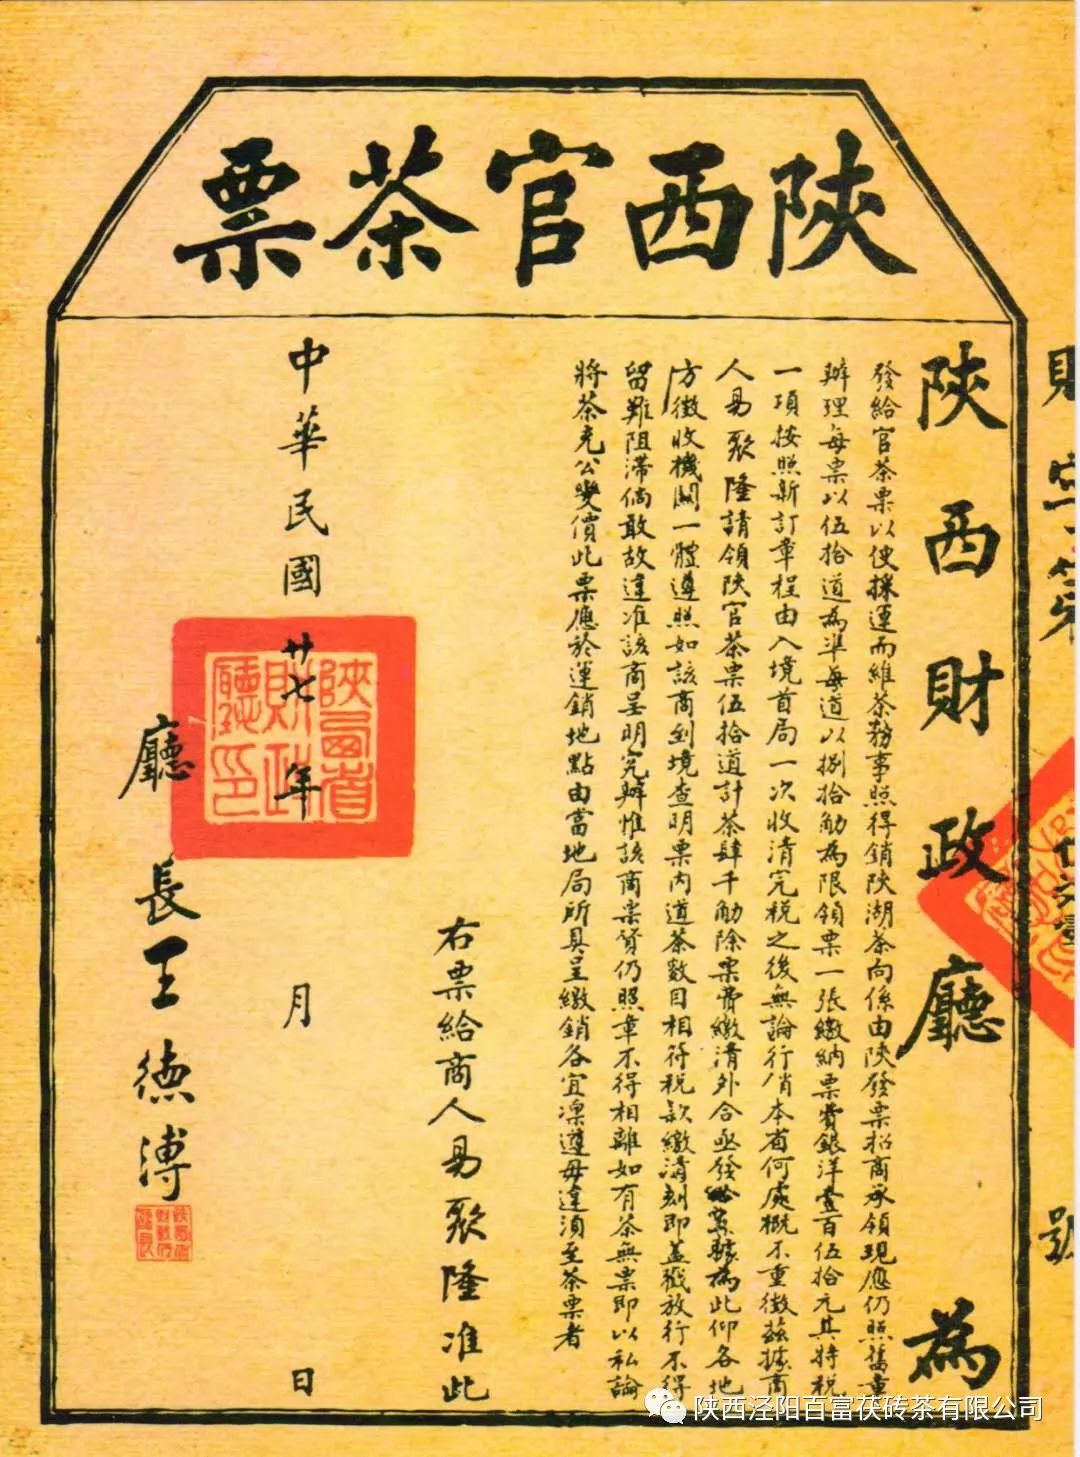 陝西官茶票
陝西財政廳為
發給官茶票以便採運而維茶務事照得銷陝湖茶向係由陝發票招商承領現應仍照舊章
辦理每票以伍拾道為準每道以捌拾觔為限領票一張繳納票費銀洋壹百伍拾元其特稅
一項按照新訂章程由入境首局一次收清完稅之後無論行銷本省何處概不重徵茲據商
人易聚隆請領陝官茶票伍拾道計茶肆千觔除票費繳清外合亟發給票據為此仰各地
方徵收機關一體遵照如該商到境查明票內道茶數目相符稅款繳清刻即蓋戳放行不得
留難阻滯倘敢故違准該商呈明究辦惟該商票貨仍照章不得相離如有茶無票即以私論
將茶充公變價此票應於運銷地點由當地局所具呈繳銷各宜凜遵毋違須至茶票者
右票給商人易聚隆准此
中華民國廿七年 月 日
廳長王德溥
陝西省財政廳印
陕西泾阳百富茯砖茶有限公司